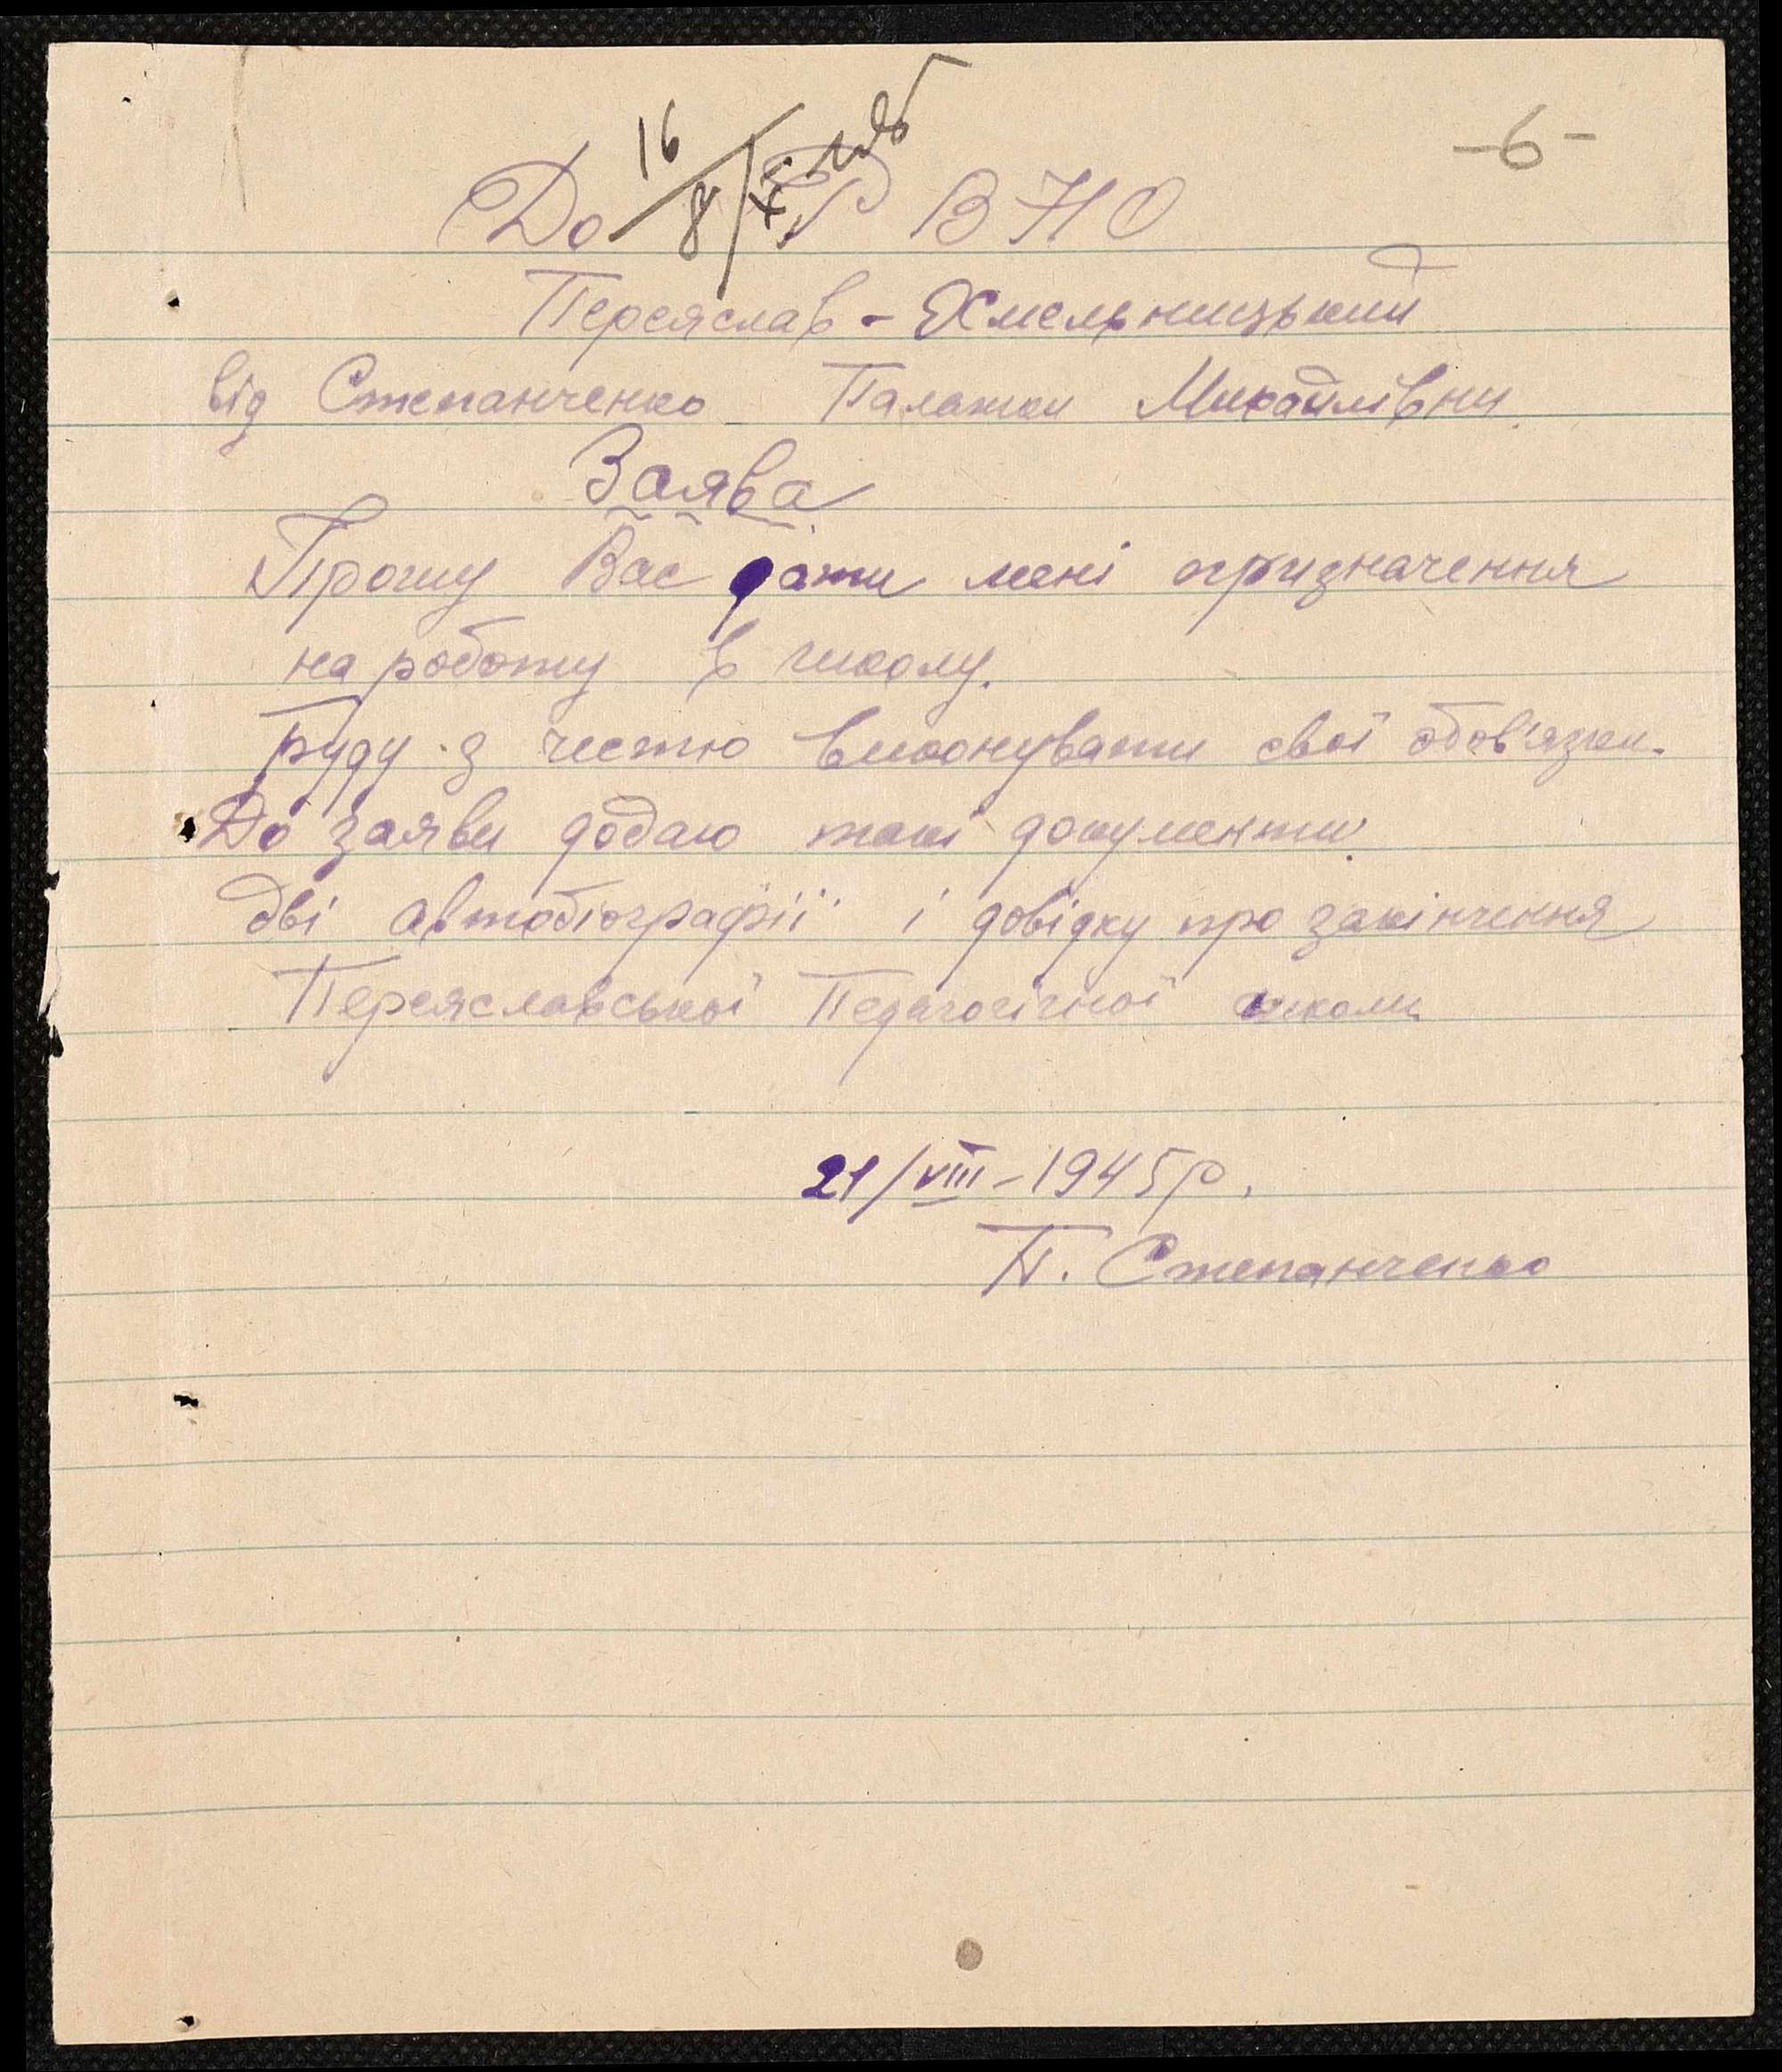 -6-
16
8/XI
До Р В Н О
Переяслав - Хмельницький
від Степанченко Палажки Михайлівни
Заява
Прошу Вас дати мені призначення
на роботу в школу.
Буду з честю виконувати свої обов'язки.
До заяви додаю такі документи:
дві автобіографії і довідку про закінчення
Переяславської Педагогічної школи
21/VIII-1945р.
П. Степанченко